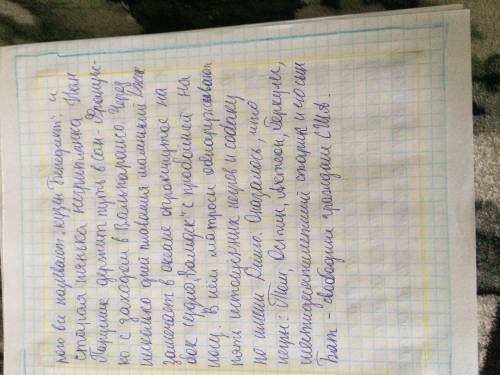 рого все называют „кузен Бенедикт" и
старая нянька негритянка Нан.
Парусник держит путь в Сан-Францис-
ко с заходом в Вальпараисо. Через
несколько дней плавания маленький Джек
замечает в океане опрокинутое на
бок судно „Вальдек" с пробоиной на
носу. В нём матросы обнаруживают
пять истощённых негров и собаку
по имени Динго. Оказалось, что
негры: Том, Остин, Актеон, Геркулес,
шестидесятилетний старик и его сын
Бат - свободные граждане США.